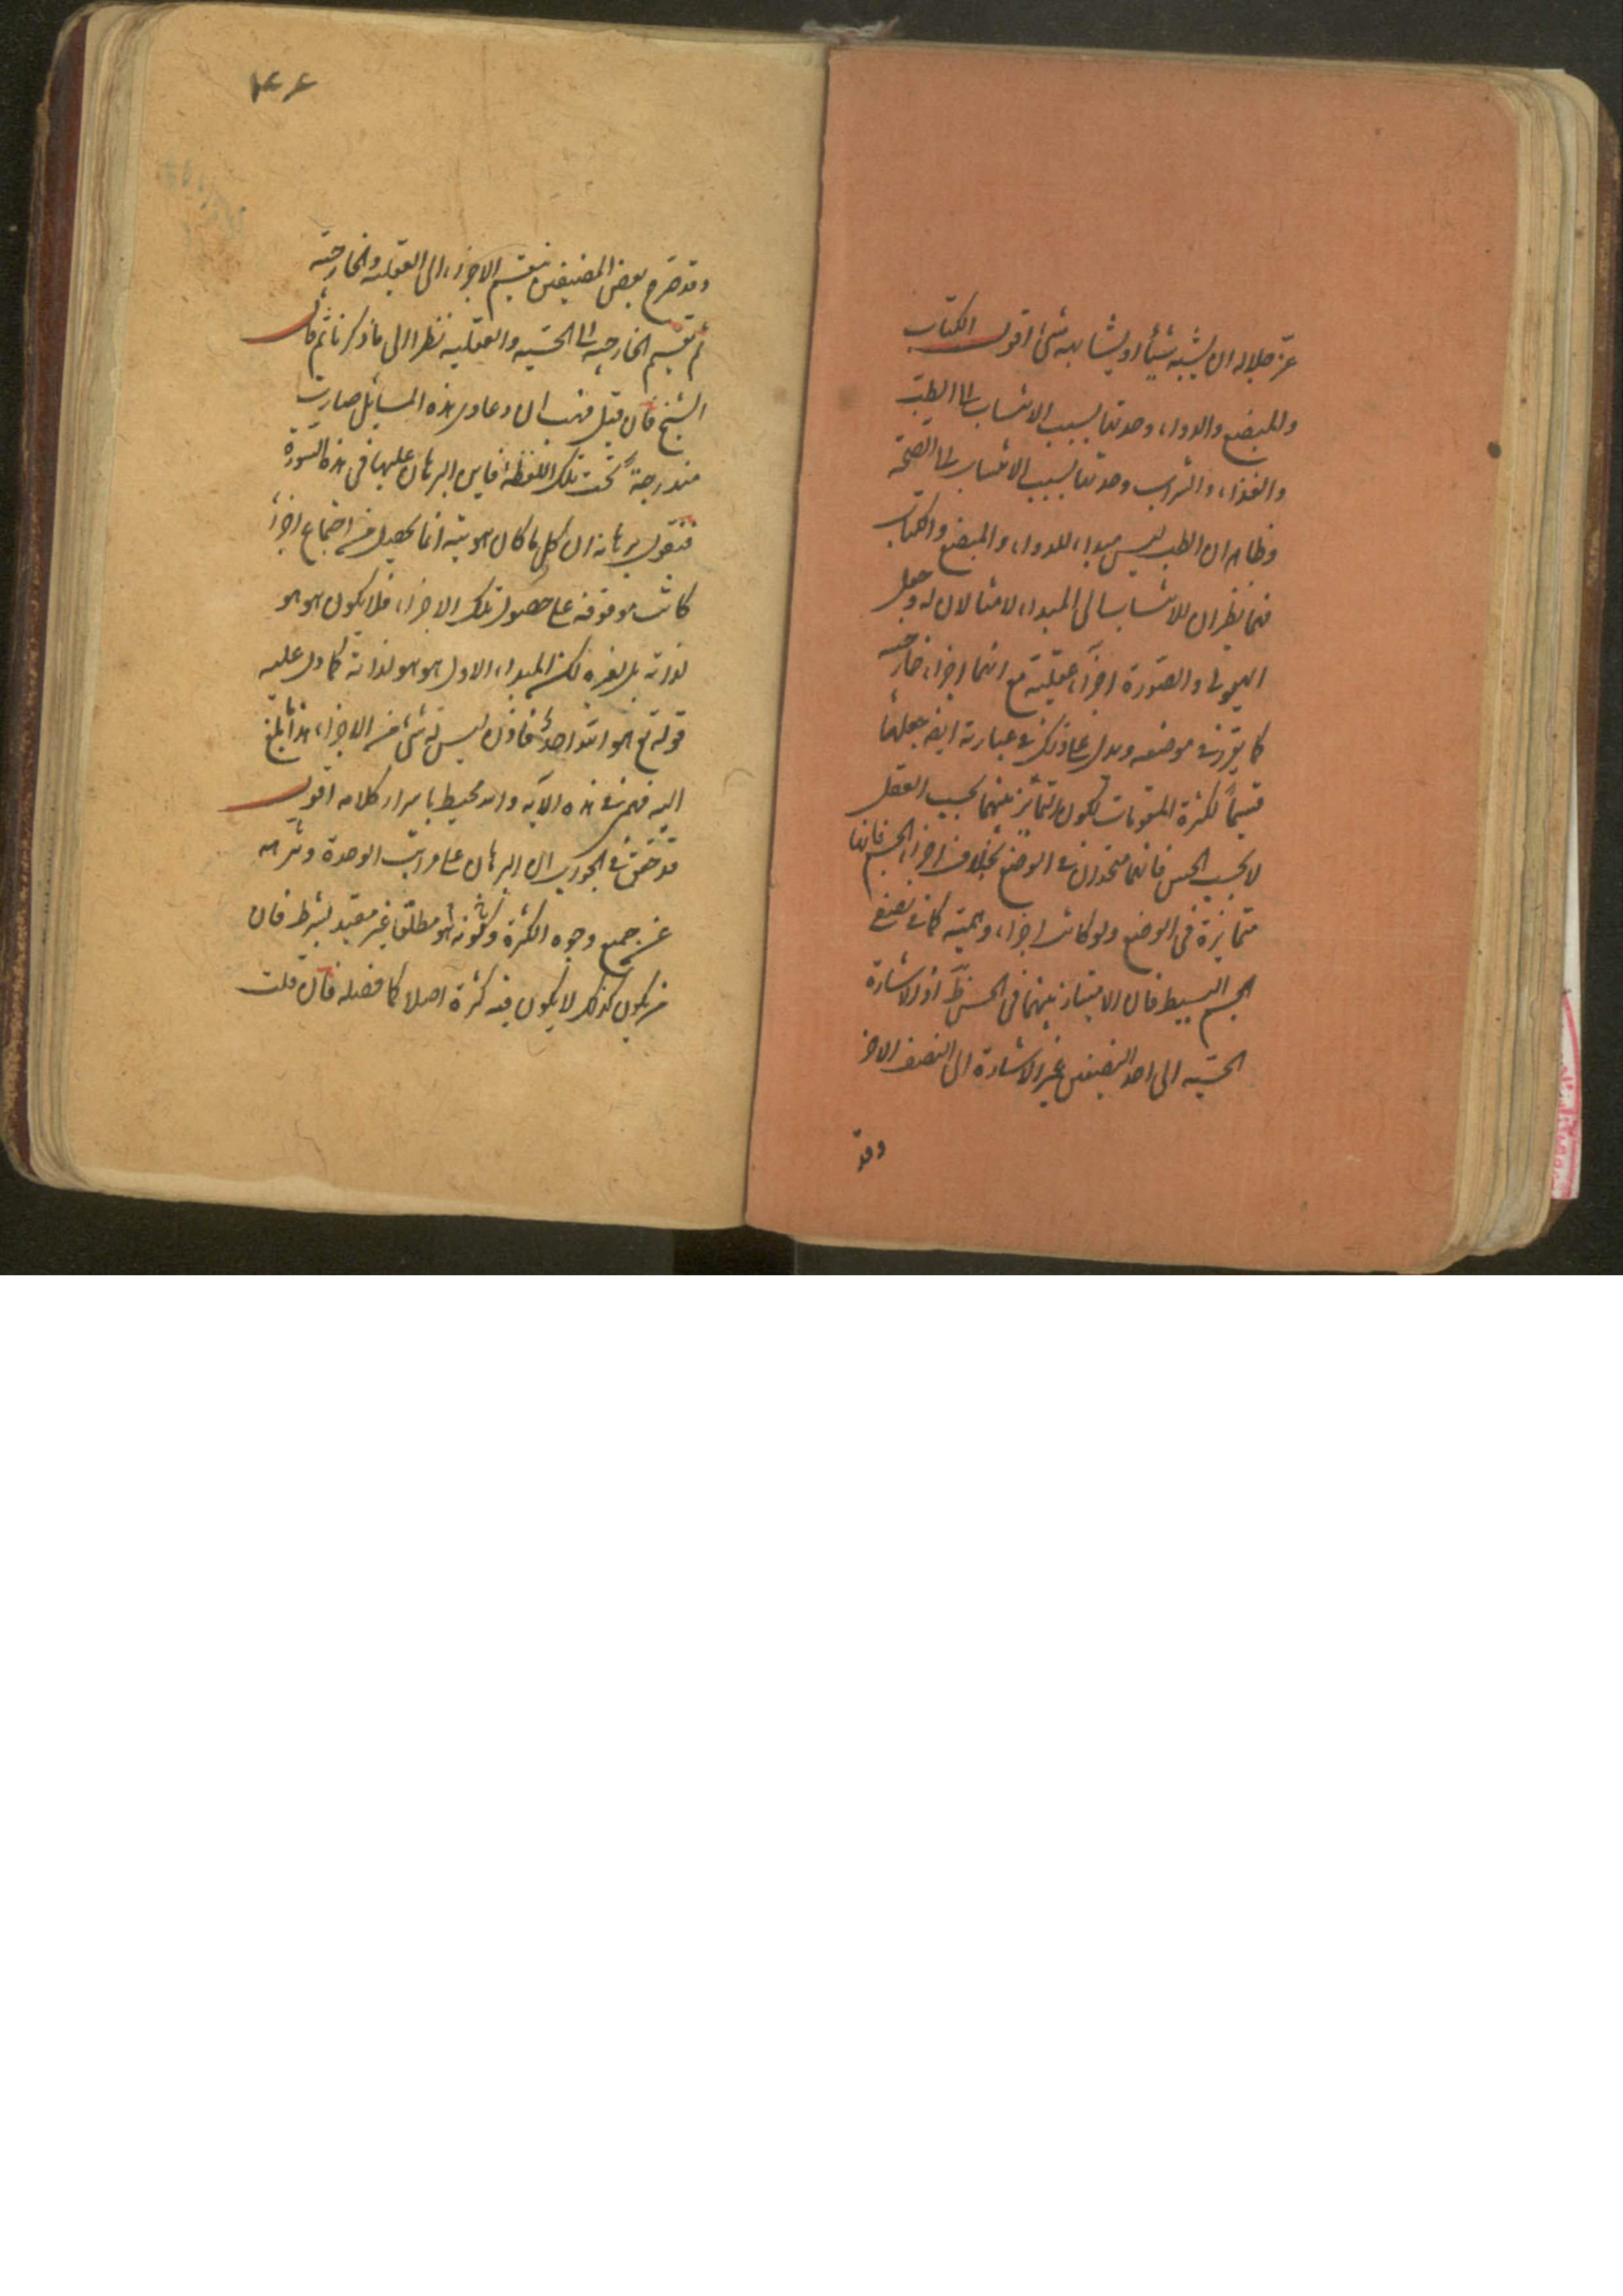 عز جلاله ان يشبه شيئا او يشابهه شئ اقول الكتاب
والمبضع والدواء وحدتها بسبب الانتساب الى الطب
والغذاء والشراب وحدتها بسبب الانتساب الى الصحة
وظاهر ان الطب ليس مبداء للدواء والمبضع والكتاب
فهما نظيران للانتساب الى المبداء لا مثالان له وجعل
الهيولى والصورة اجزاء عقلية مع انهما اجزاء خارجية
كما تقرر فى موضعه ويدل على ذلك فى عبارته ايضا جعلهما
قسيماً لكثرة المقومات لكون التمائز بينهما بحسب العقل
لا بحسب الحس فانهما متحدان فى الوضع بخلاف اجزاء الجسم فانها
متمايزة فى الوضع ولو كانت اجزاء وهمية كما فى نصفى
الجسم البسيط فان الامتياز بينهما فى الحس ظ اذ الاشارة
الحسية الى احد النصفين غير الاشارة الى النصف الاخر
وقد
وقد صرح بعض المصنفين بتقسيم الاجزاء الى العقلية والخارجية
ثم تقسيم الخارجية الى الحسية والعقلية نظرا الى ما ذكرنا ثم قال
الشيخ فان قيل فهب ان دعاوى هذه المسائل صارت
مندرجة تحت تلك اللفظة فاين البرهان عليها فى هذه السورة
فنقول برهانه ان كل ما كان هويته انما يحصل من اجتماع اجزاء
كانت موقوفة على حصول تلك الاجزاء فلا يكون هو هو
لذاته بل لغيره لكن المبداء الاول هو هو لذاته كما دل عليه
قوله تع هو الله احد فاذن ليس له شئ من الاجزاء هذا مبلغ
اليه فهمى فى هذه الآية والله محيط باسرار كلامه اقول
قد تحقق فى الجواب ان البرهان على مراتب الوحدة وتنزهه
عن جميع وجوه الكثرة كونه هو مطلقا غير مقيد بشرط فان
من يكون كذلك لا يكون فيه كثرة اصلا كما فصله فان قلت